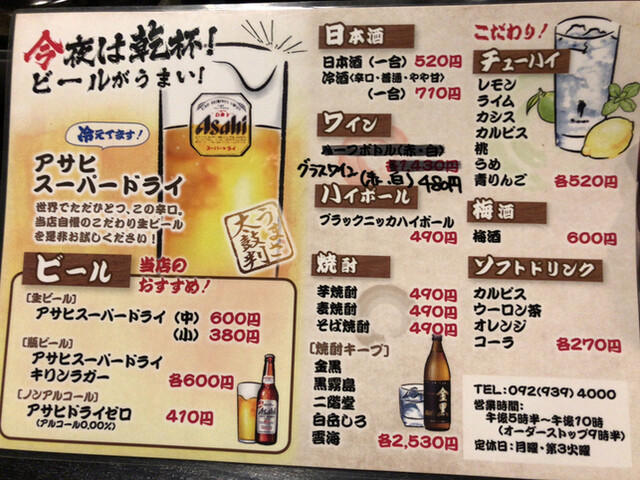 今夜は乾杯！
ビールがうまい！
Asahi
冷えてます！
アサヒ
スーパードライ
世界でただひとつ、この辛口。
当店自慢のこだわり生ビール
を是非お試しください！
うまさ
太鼓判
ビール
当店の
おすすめ！
[生ビール]
アサヒスーパードライ (中) 600円
(小) 380円
[瓶ビール]
アサヒスーパードライ
キリンラガー 各600円
[ノンアルコール]
アサヒドライゼロ 410円
(アルコール0.00%)
日本酒
日本酒(一合) 520円
冷酒(辛口・普通・やや甘)
(一合) 710円
ワイン
ハーフボトル(赤・白)
各1,430円
グラスワイン(赤・白) 480円
ハイボール
ブラックニッカハイボール
490円
焼酎
芋焼酎 490円
麦焼酎 490円
そば焼酎 490円
[焼酎キープ]
金黒
黒霧島
二階堂
白岳しろ
雲海 各2,530円
金黒
こだわり！
チューハイ
レモン
ライム
カシス
カルピス
桃
うめ
青りんご 各520円
梅酒
梅酒 600円
ソフトドリンク
カルピス
ウーロン茶
オレンジ
コーラ 各270円
TEL:092(939)4000
営業時間:
午後5時半〜午後10時
(オーダーストップ9時半)
定休日:月曜・第3火曜